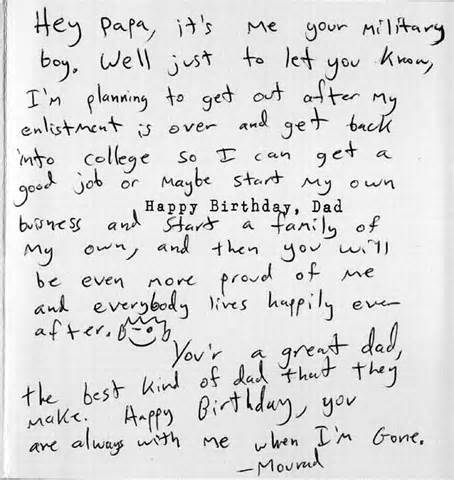 Hey Papa, it's me your military
boy. Well just to let you know,
I'm planning to get out after my
enlistment is over and get back
into college so I can get a
good job or maybe start my own
Happy Birthday, Dad
business and start a family of
my own, and then you will
be even more proud of me
and everybody lives happily ever
after.
You'r a great dad,
the best kind of dad that they
make. Happy Birthday, you
are always with me when I'm Gone.
-Mourad